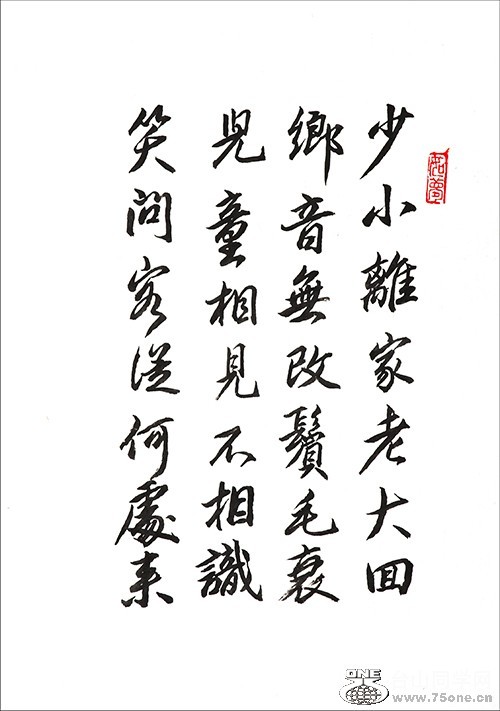 少小離家老大回
鄉音無改鬢毛衰
兒童相見不相識
笑問客從何處來
ONE
www.75one.com